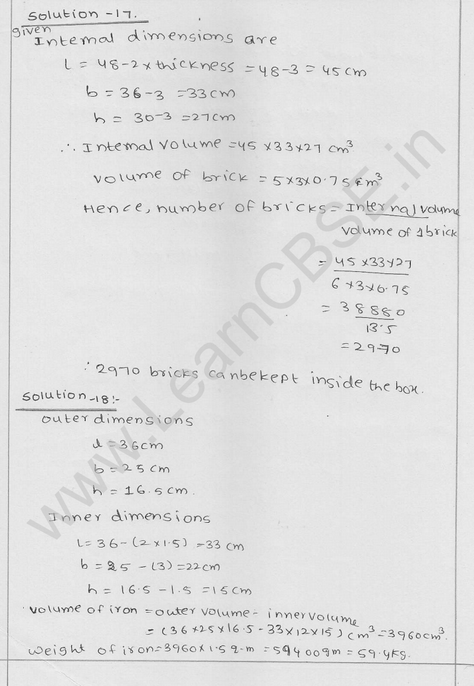 Solution -17.
given
Internal dimensions are
l = 48-2 x thickness = 48-3 = 45 cm
b = 36-3 = 33cm
h = 30-3 = 27cm
∴ Internal volume = 45 x 33 x 27 cm³
volume of brick = 5 x 3 x 0.75 cm³
Hence, number of bricks = Internal volume
volume of 1 brick
= 45 x 33 x 27
6 x 3 x 0.75
= 38880
13.5
= 2970
∴ 2970 bricks can be kept inside the box.
Solution -18:-
outer dimensions
l = 36cm
b = 25cm
h = 16.5cm.
Inner dimensions
l = 36-(2 x 1.5) = 33 cm
b = 25 - (3) = 22cm
h = 16.5 - 1.5 = 15cm
volume of iron = outer volume - inner volume
= (36 x 25 x 16.5 - 33 x 12 x 15) cm³ = 3960 cm³.
weight of iron = 3960 x 1.5 g.m = 59400gm = 59.4kg.
www.LearnCBSE.in